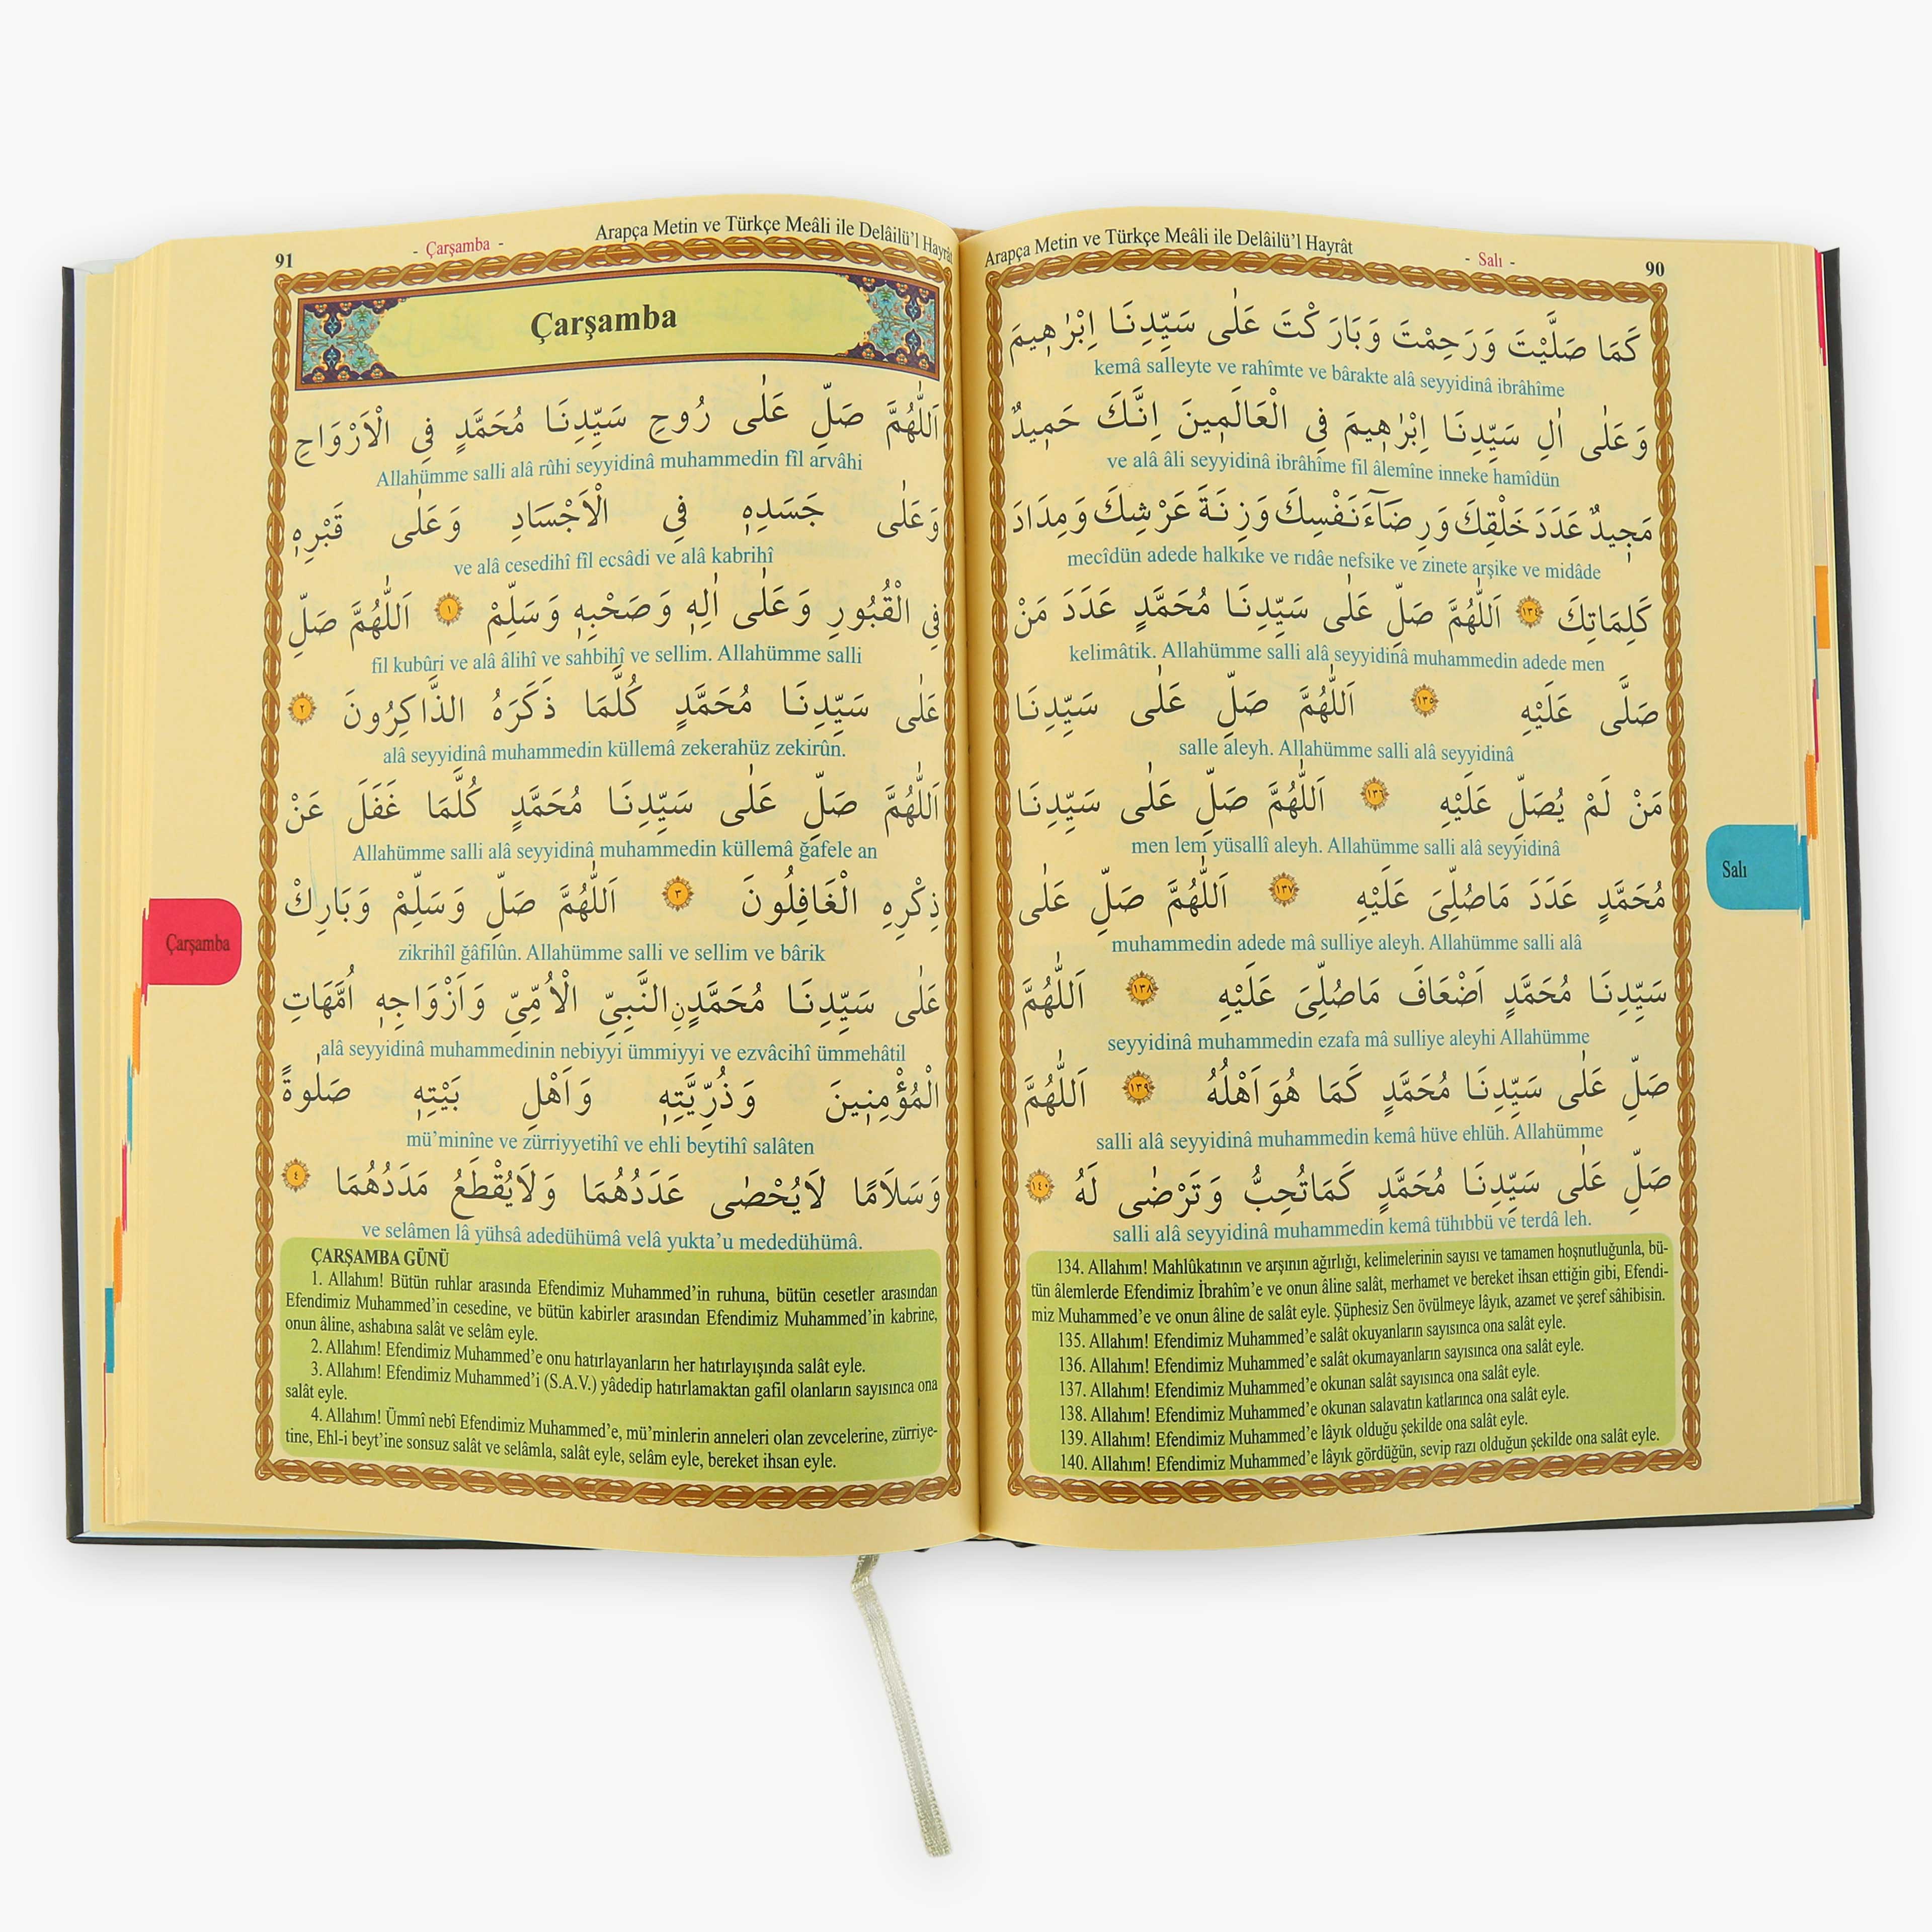 Arapça Metin ve Türkçe Meâli ile Delâilü'l Hayrât
- Salı -
90
كَمَا صَلَّيْتَ وَرَحِمْتَ وَبَارَكْتَ عَلٰى سَيِّدِنَا اِبْرٰهٖيمَ
kemâ salleyte ve rahîmte ve bârakte alâ seyyidinâ ibrâhîme
وَعَلٰى اٰلِ سَيِّدِنَا اِبْرٰهٖيمَ فِي الْعَالَمٖينَ اِنَّكَ حَمٖيدٌ
ve alâ âli seyyidinâ ibrâhîme fil âlemîne inneke hamîdün
مَجٖيدٌ عَدَدَ خَلْقِكَ وَرِضَآءَ نَفْسِكَ وَزِنَةَ عَرْشِكَ وَمِدَادَ
mecîdün adede halkıke ve rıdâe nefsike ve zinete arşike ve midâde
كَلِمَاتِكَ ١٣٤ اَللّٰهُمَّ صَلِّ عَلٰى سَيِّدِنَا مُحَمَّدٍ عَدَدَ مَنْ
kelimâtik. Allahümme salli alâ seyyidinâ muhammedin adede men
صَلَّى عَلَيْهِ ١٣٥ اَللّٰهُمَّ صَلِّ عَلٰى سَيِّدِنَا
salle aleyh. Allahümme salli alâ seyyidinâ
مَنْ لَمْ يُصَلِّ عَلَيْهِ ١٣٦ اَللّٰهُمَّ صَلِّ عَلٰى سَيِّدِنَا
men lem yüsallî aleyh. Allahümme salli alâ seyyidinâ
مُحَمَّدٍ عَدَدَ مَاصُلِّىَ عَلَيْهِ ١٣٧ اَللّٰهُمَّ صَلِّ عَلٰى
muhammedin adede mâ sulliye aleyh. Allahümme salli alâ
سَيِّدِنَا مُحَمَّدٍ اَضْعَافَ مَاصُلِّىَ عَلَيْهِ ١٣٨ اَللّٰهُمَّ
seyyidinâ muhammedin ezafa mâ sulliye aleyhi Allahümme
صَلِّ عَلٰى سَيِّدِنَا مُحَمَّدٍ كَمَا هُوَ اَهْلُهُ ١٣٩ اَللّٰهُمَّ
salli alâ seyyidinâ muhammedin kemâ hüve ehlüh. Allahümme
صَلِّ عَلٰى سَيِّدِنَا مُحَمَّدٍ كَمَاتُحِبُّ وَتَرْضٰى لَهُ ١٤٠
salli alâ seyyidinâ muhammedin kemâ tühıbbü ve terdâ leh.
134. Allahım! Mahlûkatının ve arşının ağırlığı, kelimelerinin sayısı ve tamamen hoşnutluğunla, bü-
tün âlemlerde Efendimiz İbrahîm'e ve onun âline salât, merhamet ve bereket ihsan ettiğin gibi, Efendi-
miz Muhammed'e ve onun âline de salât eyle. Şüphesiz Sen övülmeye lâyık, azamet ve şeref sâhibisin.
135. Allahım! Efendimiz Muhammed'e salât okuyanların sayısınca ona salât eyle.
136. Allahım! Efendimiz Muhammed'e salât okumayanların sayısınca ona salât eyle.
137. Allahım! Efendimiz Muhammed'e okunan salât sayısınca ona salât eyle.
138. Allahım! Efendimiz Muhammed'e okunan salavatın katlarınca ona salât eyle.
139. Allahım! Efendimiz Muhammed'e lâyık olduğu şekilde ona salât eyle.
140. Allahım! Efendimiz Muhammed'e lâyık gördüğün, sevip razı olduğun şekilde ona salât eyle.
Salı
91
- Çarşamba -
Arapça Metin ve Türkçe Meâli ile Delâilü'l Hayrât
Çarşamba
اَللّٰهُمَّ صَلِّ عَلٰى رُوحِ سَيِّدِنَا مُحَمَّدٍ فِي الْاَرْوَاحِ
Allahümme salli alâ rûhi seyyidinâ muhammedin fîl arvâhi
وَعَلٰى جَسَدِهٖ فِي الْاَجْسَادِ وَعَلٰى قَبْرِهٖ
ve alâ cesedihî fîl ecsâdi ve alâ kabrihî
فِي الْقُبُورِ وَعَلٰى اٰلِهٖ وَصَحْبِهٖ وَسَلِّمْ ١ اَللّٰهُمَّ صَلِّ
fil kubûri ve alâ âlihî ve sahbihî ve sellim. Allahümme salli
عَلٰى سَيِّدِنَا مُحَمَّدٍ كُلَّمَا ذَكَرَهُ الذَّاكِرُونَ ٢
alâ seyyidinâ muhammedin küllemâ zekerahüz zekirûn.
اَللّٰهُمَّ صَلِّ عَلٰى سَيِّدِنَا مُحَمَّدٍ كُلَّمَا غَفَلَ عَنْ
Allahümme salli alâ seyyidinâ muhammedin küllemâ ğafele an
ذِكْرِهِ الْغَافِلُونَ ٣ اَللّٰهُمَّ صَلِّ وَسَلِّمْ وَبَارِكْ
zikrihîl ğâfilûn. Allahümme salli ve sellim ve bârik
عَلٰى سَيِّدِنَا مُحَمَّدٍنِ النَّبِيِّ الْاُمِّيِّ وَاَزْوَاجِهٖ اُمَّهَاتِ
alâ seyyidinâ muhammedinin nebiyyi ümmiyyi ve ezvâcihî ümmehâtil
الْمُؤْمِنٖينَ وَذُرِّيَّتِهٖ وَاَهْلِ بَيْتِهٖ صَلٰوةً
mü'minîne ve zürriyyetihî ve ehli beytihî salâten
وَسَلَامًا لَايُحْصٰى عَدَدُهُمَا وَلَايُقْطَعُ مَدَدُهُمَا ٤
ve selâmen lâ yühsâ adedühümâ velâ yukta'u mededühümâ.
ÇARŞAMBA GÜNÜ
1. Allahım! Bütün ruhlar arasında Efendimiz Muhammed'in ruhuna, bütün cesetler arasından
Efendimiz Muhammed'in cesedine, ve bütün kabirler arasından Efendimiz Muhammed'in kabrine,
onun âline, ashabına salât ve selâm eyle.
2. Allahım! Efendimiz Muhammed'e onu hatırlayanların her hatırlayışında salât eyle.
3. Allahım! Efendimiz Muhammed'i (S.A.V.) yâdedip hatırlamaktan gafil olanların sayısınca ona
salât eyle.
4. Allahım! Ümmî nebî Efendimiz Muhammed'e, mü'minlerin anneleri olan zevcelerine, zürriye-
tine, Ehl-i beyt'ine sonsuz salât ve selâmla, salât eyle, selâm eyle, bereket ihsan eyle.
Çarşamba